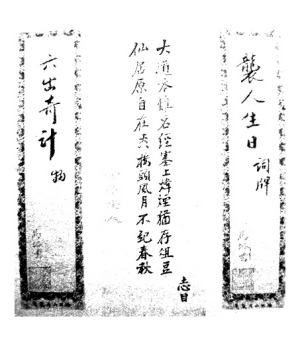 襲人生日 詞牌
大道本難名經塞上烽煙猶存俎豆
仙居原自在共橋頭風月不記春秋
志目
六出奇計 物